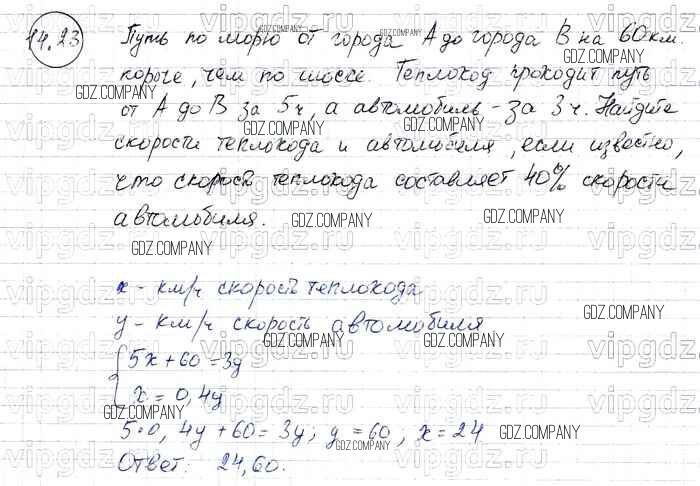 14.23
Путь по морю от города А до города В на 60 км.
короче, чем по шоссе. Теплоход проходит путь
от А до В за 5 ч, а автомобиль - за 3 ч. Найдите
скорости теплохода и автомобиля, если известно,
что скорость теплохода составляет 40% скорости
автомобиля.
x - км/ч скорость теплохода
y - км/ч скорость автомобиля
5x + 60 = 3y
x = 0,4y
5·0,4y + 60 = 3y; y = 60; x = 24
Ответ: 24, 60.
GDZ.COMPANY
vipgdz.ru